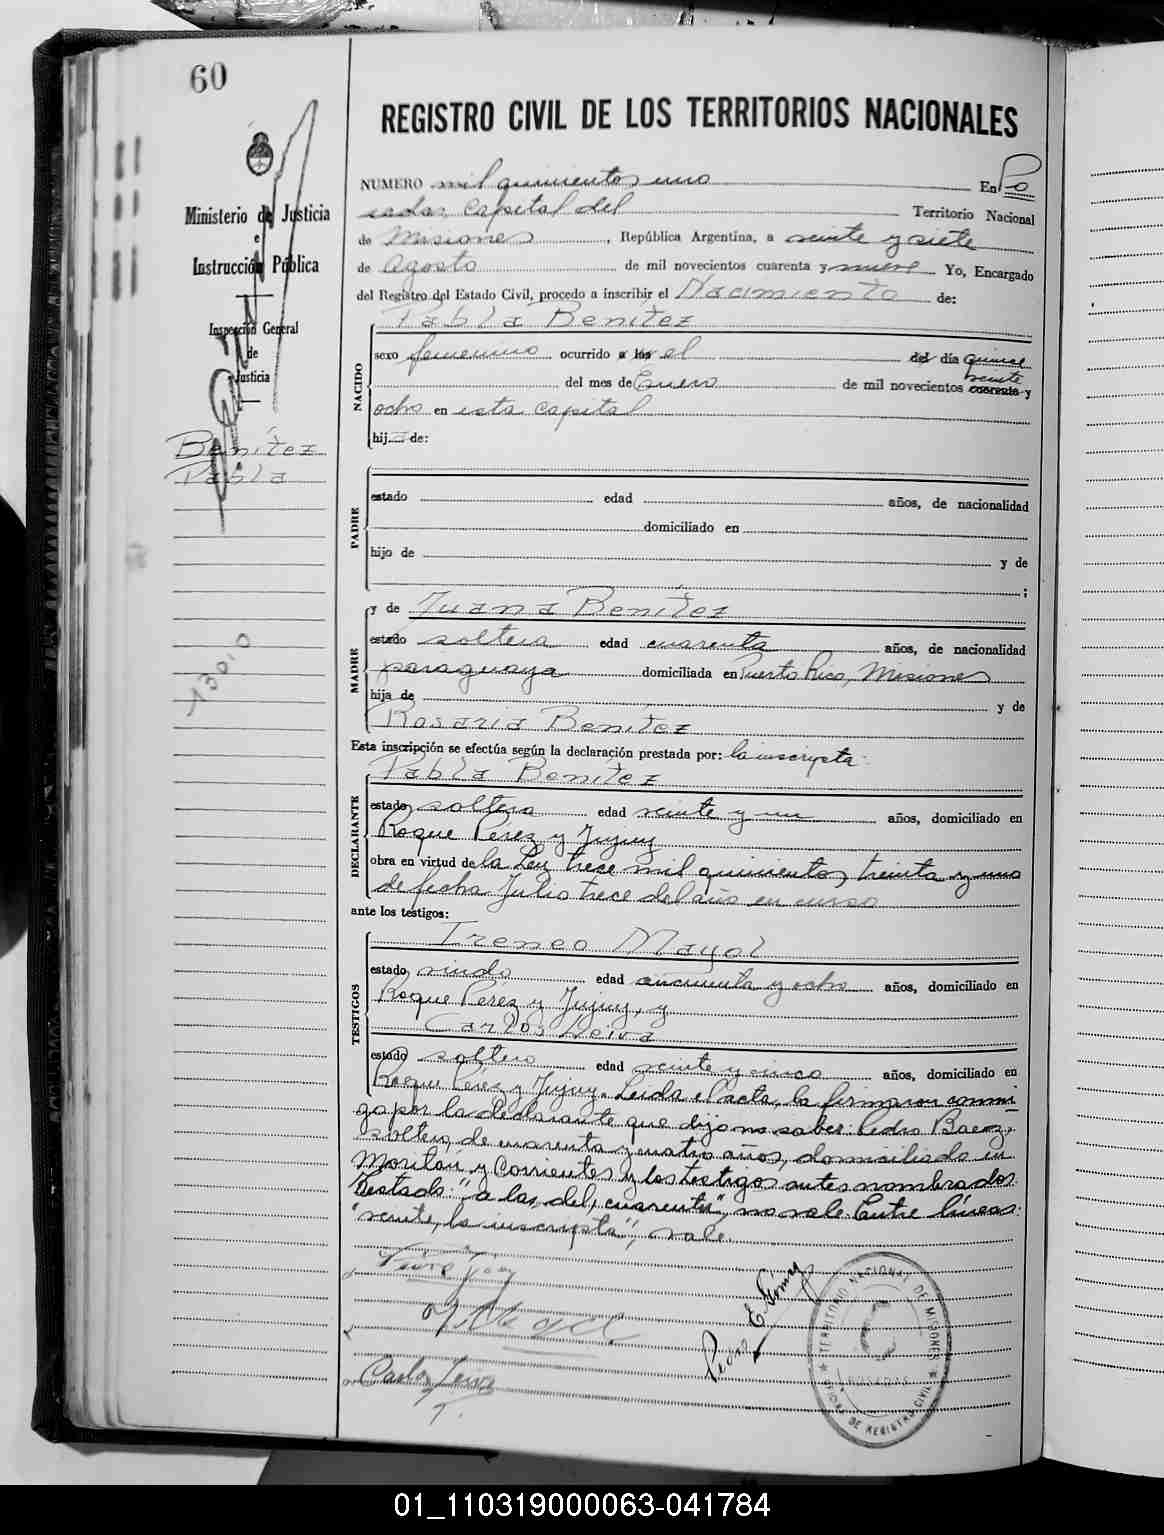 60
Ministerio de Justicia
e
Instrucción Pública
Inspección General
de
Justicia
Benítez
Pabla
13010
REGISTRO CIVIL DE LOS TERRITORIOS NACIONALES
NUMERO mil quinientos uno En Po
sadas, capital del Territorio Nacional
de Misiones, República Argentina, a veinte y siete
de Agosto de mil novecientos cuarenta y nueve Yo, Encargado
del Registro del Estado Civil, procedo a inscribir el Nacimiento de:
NACIDO
Pabla Benítez
sexo femenino ocurrido a las el del día quince
del mes de Enero de mil novecientos cuarenta veinte y
ocho en esta capital
hija de:
PADRE
estado edad años, de nacionalidad
domiciliado en
hijo de y de
;
MADRE
y de Juana Benítez
estado soltera edad cuarenta años, de nacionalidad
paraguaya domiciliada en Puerto Rico, Misiones
hija de y de
Rosaria Benítez
Esta inscripción se efectúa según la declaración prestada por: la inscripta
DECLARANTE
Pabla Benítez
estado soltera edad veinte y un años, domiciliado en
Roque Perez y Jujuy
obra en virtud de la Ley trece mil quinientos treinta y uno
de fecha Julio trece del año en curso
ante los testigos:
TESTIGOS
Ireneo Mayol
estado viudo edad cincuenta y ocho años, domiciliado en
Roque Perez y Jujuy, y
Carlos Leiva
estado soltero edad veinte y cinco años, domiciliado en
Roque Pérez y Jujuy. Leida el acta, la firmaron conmi
go por la declarante que dijo no saber: Pedro Baez,
soltero, de cuarenta y cuatro años, domiciliado en
Moritán y Corrientes y los testigos antes nombrados.
Testado: "a las, del, cuarenta", no vale. Entre líneas:
"veinte, la inscripta", vale.
Pedro E. Gómez
Carlos Leiva
TERRITORIO NACIONAL DE MISIONES
POSADAS
OFICINA DE REGISTRO CIVIL
01_110319000063-041784